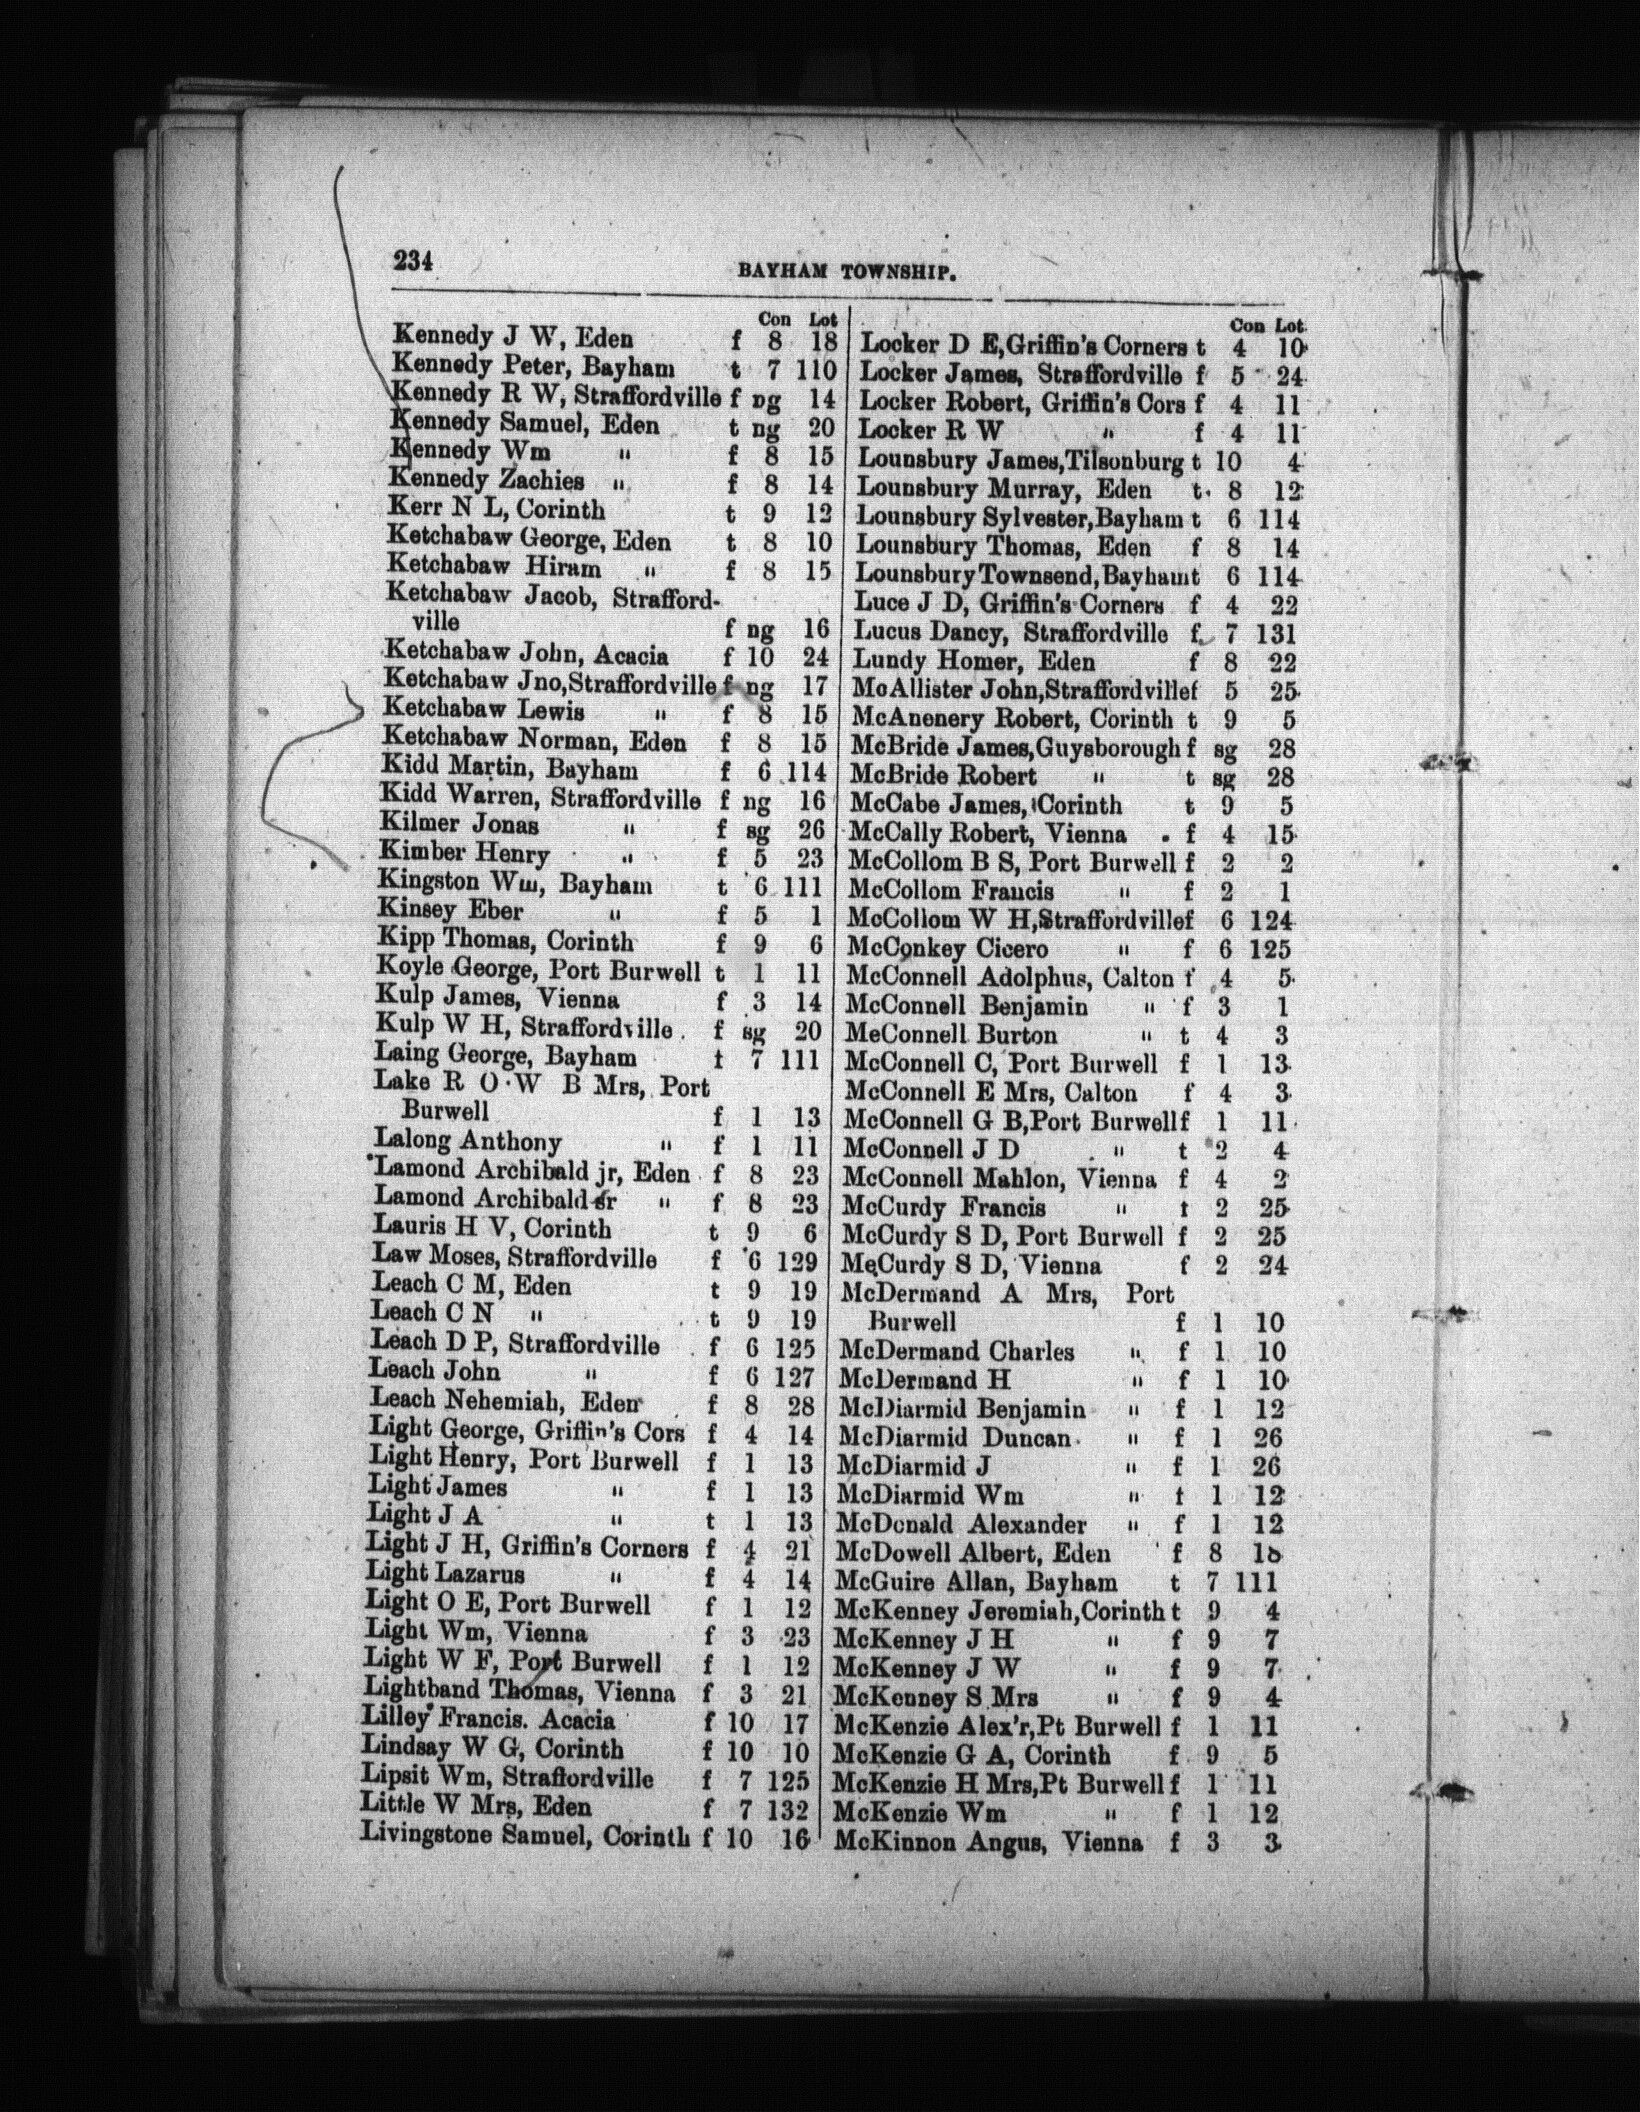 234
BAYHAM TOWNSHIP.
Con Lot
Kennedy J W, Eden f 8 18
Kennedy Peter, Bayham t 7 110
Kennedy R W, Straffordville f ng 14
Kennedy Samuel, Eden t ng 20
Kennedy Wm " f 8 15
Kennedy Zachies " f 8 14
Kerr N L, Corinth t 9 12
Ketchabaw George, Eden t 8 10
Ketchabaw Hiram " f 8 15
Ketchabaw Jacob, Strafford-
ville f ng 16
Ketchabaw John, Acacia f 10 24
Ketchabaw Jno, Straffordville f ng 17
Ketchabaw Lewis " f 8 15
Ketchabaw Norman, Eden f 8 15
Kidd Martin, Bayham f 6 114
Kidd Warren, Straffordville f ng 16
Kilmer Jonas " f sg 26
Kimber Henry " f 5 23
Kingston Wm, Bayham t 6 111
Kinsey Eber " f 5 1
Kipp Thomas, Corinth f 9 6
Koyle George, Port Burwell t 1 11
Kulp James, Vienna f 3 14
Kulp W H, Straffordville f sg 20
Laing George, Bayham t 7 111
Lake R O W B Mrs, Port
Burwell f 1 13
Lalong Anthony " f 1 11
Lamond Archibald jr, Eden f 8 23
Lamond Archibald sr " f 8 23
Lauris H V, Corinth t 9 6
Law Moses, Straffordville f 6 129
Leach C M, Eden t 9 19
Leach C N " t 9 19
Leach D P, Straffordville f 6 125
Leach John " f 6 127
Leach Nehemiah, Eden f 8 28
Light George, Griffin's Cors f 4 14
Light Henry, Port Burwell f 1 13
Light James " f 1 13
Light J A " t 1 13
Light J H, Griffin's Corners f 4 21
Light Lazarus " f 4 14
Light O E, Port Burwell f 1 12
Light Wm, Vienna f 3 23
Light W F, Port Burwell f 1 12
Lightband Thomas, Vienna f 3 21
Lilley Francis. Acacia f 10 17
Lindsay W G, Corinth f 10 10
Lipsit Wm, Straffordville f 7 125
Little W Mrs, Eden f 7 132
Livingstone Samuel, Corinth f 10 16
Con Lot
Locker D E, Griffin's Corners t 4 10
Locker James, Straffordville f 5 24
Locker Robert, Griffin's Cors f 4 11
Locker R W " f 4 11
Lounsbury James, Tilsonburg t 10 4
Lounsbury Murray, Eden t 8 12
Lounsbury Sylvester, Bayham t 6 114
Lounsbury Thomas, Eden f 8 14
Lounsbury Townsend, Bayham t 6 114
Luce J D, Griffin's Corners f 4 22
Lucus Dancy, Straffordville f 7 131
Lundy Homer, Eden f 8 22
McAllister John, Straffordville f 5 25
McAnenery Robert, Corinth t 9 5
McBride James, Guysborough f sg 28
McBride Robert " t sg 28
McCabe James, Corinth t 9 5
McCally Robert, Vienna f 4 15
McCollom B S, Port Burwell f 2 2
McCollom Francis " f 2 1
McCollom W H, Straffordville f 6 124
McConkey Cicero " f 6 125
McConnell Adolphus, Calton f 4 5
McConnell Benjamin " f 3 1
McConnell Burton " t 4 3
McConnell C, Port Burwell f 1 13
McConnell E Mrs, Calton f 4 3
McConnell G B, Port Burwell f 1 11
McConnell J D " t 2 4
McConnell Mahlon, Vienna f 4 2
McCurdy Francis " t 2 25
McCurdy S D, Port Burwell f 2 25
McCurdy S D, Vienna f 2 24
McDermand A Mrs, Port
Burwell f 1 10
McDermand Charles " f 1 10
McDermand H " f 1 10
McDiarmid Benjamin " f 1 12
McDiarmid Duncan " f 1 26
McDiarmid J " f 1 26
McDiarmid Wm " t 1 12
McDonald Alexander " f 1 12
McDowell Albert, Eden f 8
McGuire Allan, Bayham t 7 111
McKenney Jeremiah, Corinth t 9 4
McKenney J H " f 9 7
McKenney J W " f 9 7
McKenney S Mrs " f 9 4
McKenzie Alex'r, Pt Burwell f 1 11
McKenzie G A, Corinth f 9 5
McKenzie H Mrs, Pt Burwell f 1 11
McKenzie Wm " f 1 12
McKinnon Angus, Vienna f 3 3